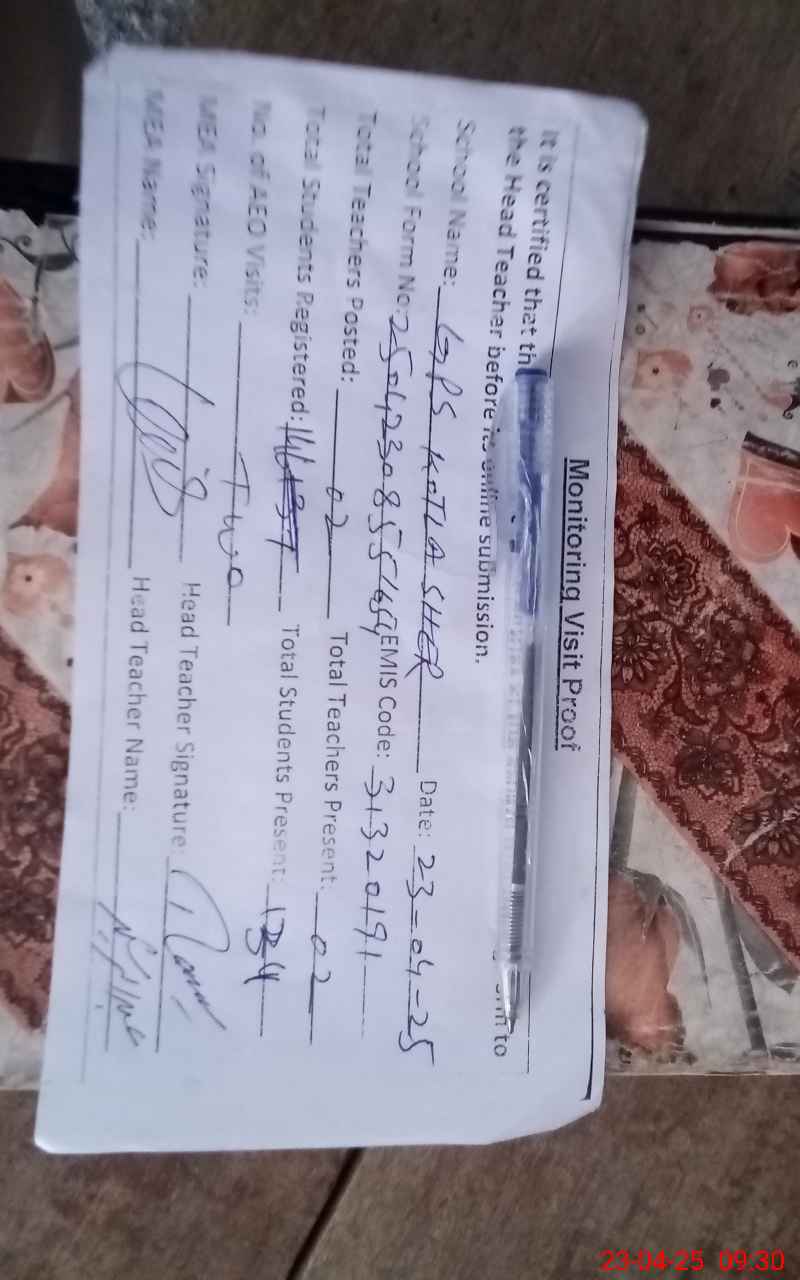 Monitoring Visit Proof
It is certified that th
the Head Teacher before its online submission.
School Name: GPS KOTLA SHER Date: 23-04-25
School Form No: EMIS Code: 31320191
Total Teachers Posted: 02 Total Teachers Present: 02
Total Students Registered: Total Students Present: 134
No. of AEO Visits: Two
MEA Signature: Head Teacher Signature:
MEA Name: Head Teacher Name:
23-04-25 09:30